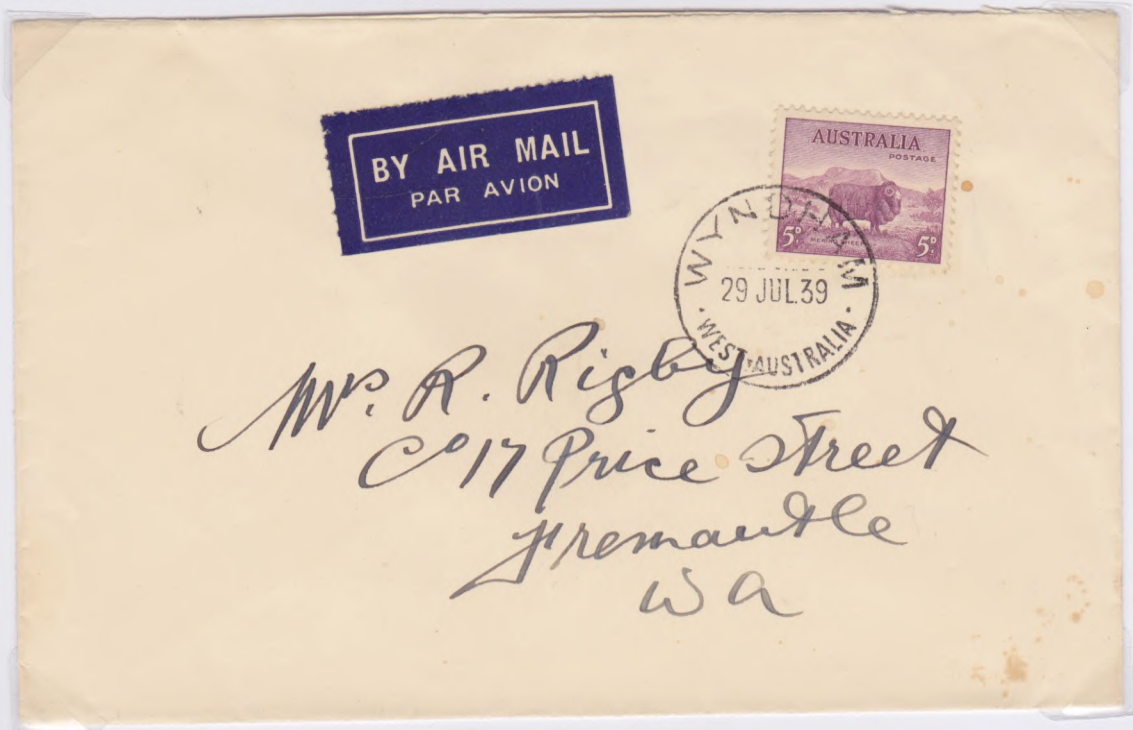 BY AIR MAIL
PAR AVION
AUSTRALIA
POSTAGE
5D
MERINO SHEEP
5D
WYNDHAM
29 JUL.39
WEST-AUSTRALIA
Mrs. R. Rigby
Co 17 Price Street
Fremantle
W A